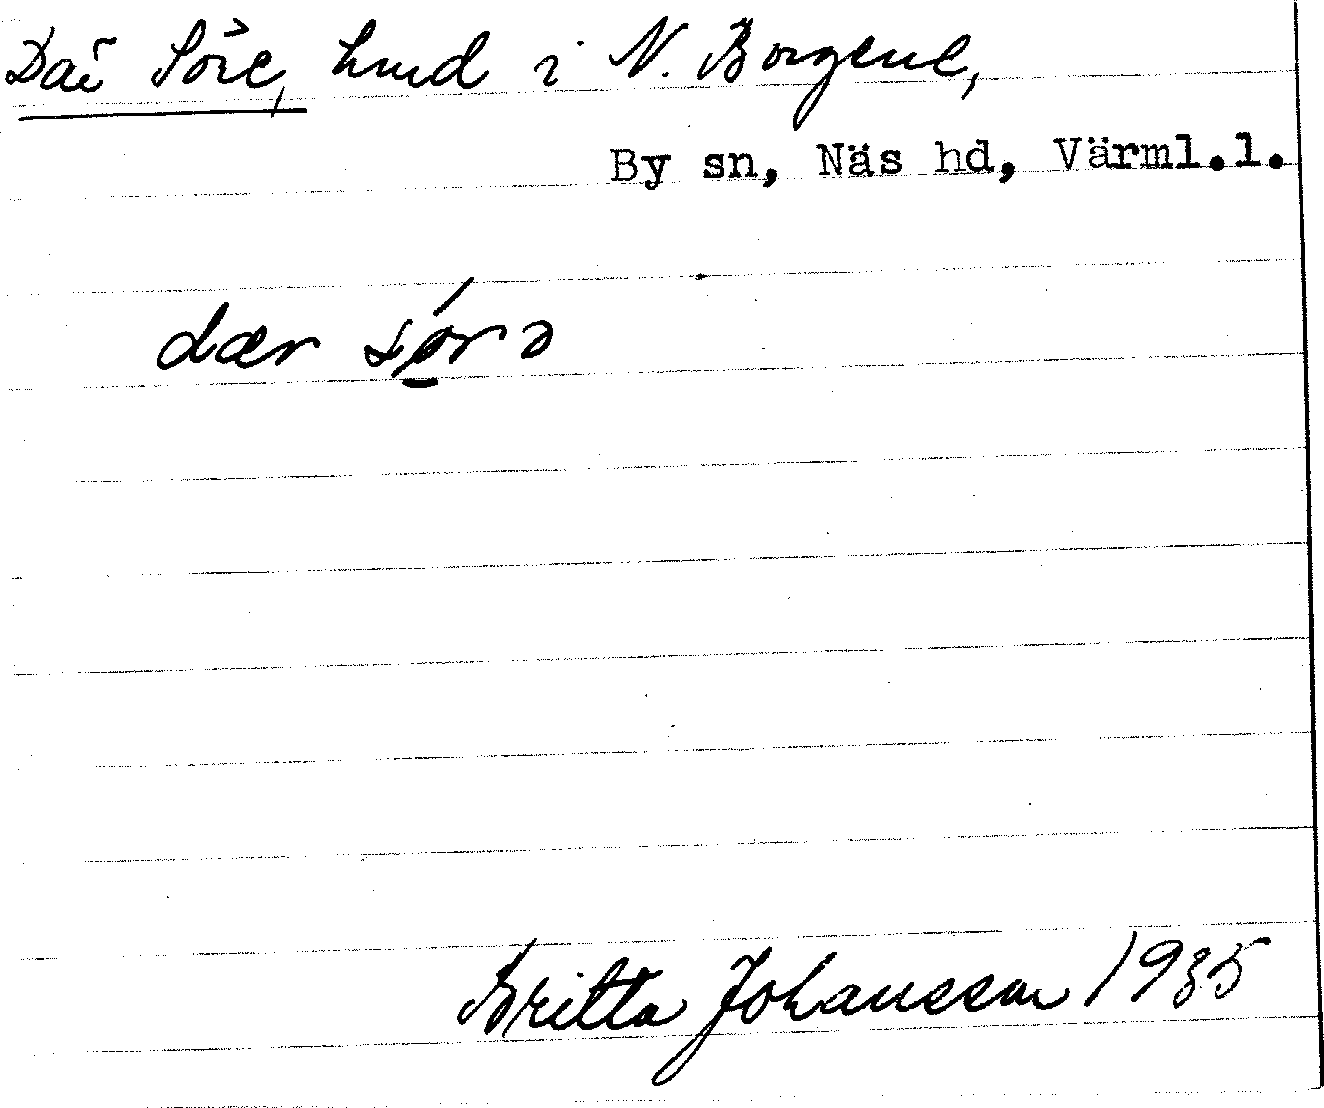 Där Söre, hmd i N. Borgene,
By sn, Näs hd, Värml.l.
dær sørə
Britta Johansson 1935